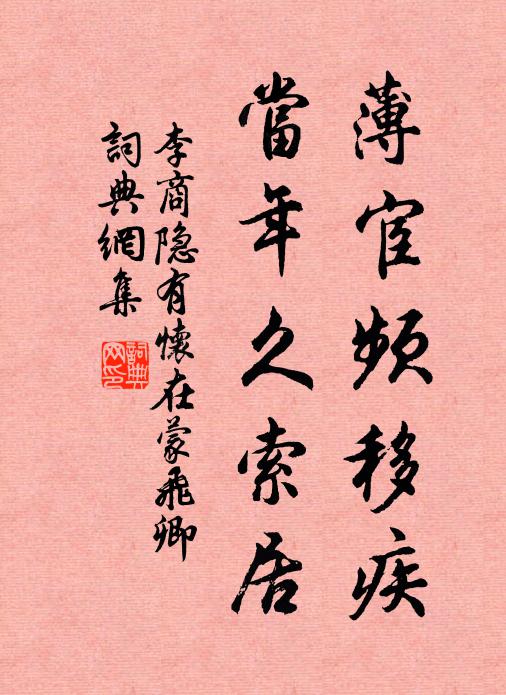 薄宦频移疾
當年久索居
李商隐有懷在蒙飛卿
詞典網集
詞典網印